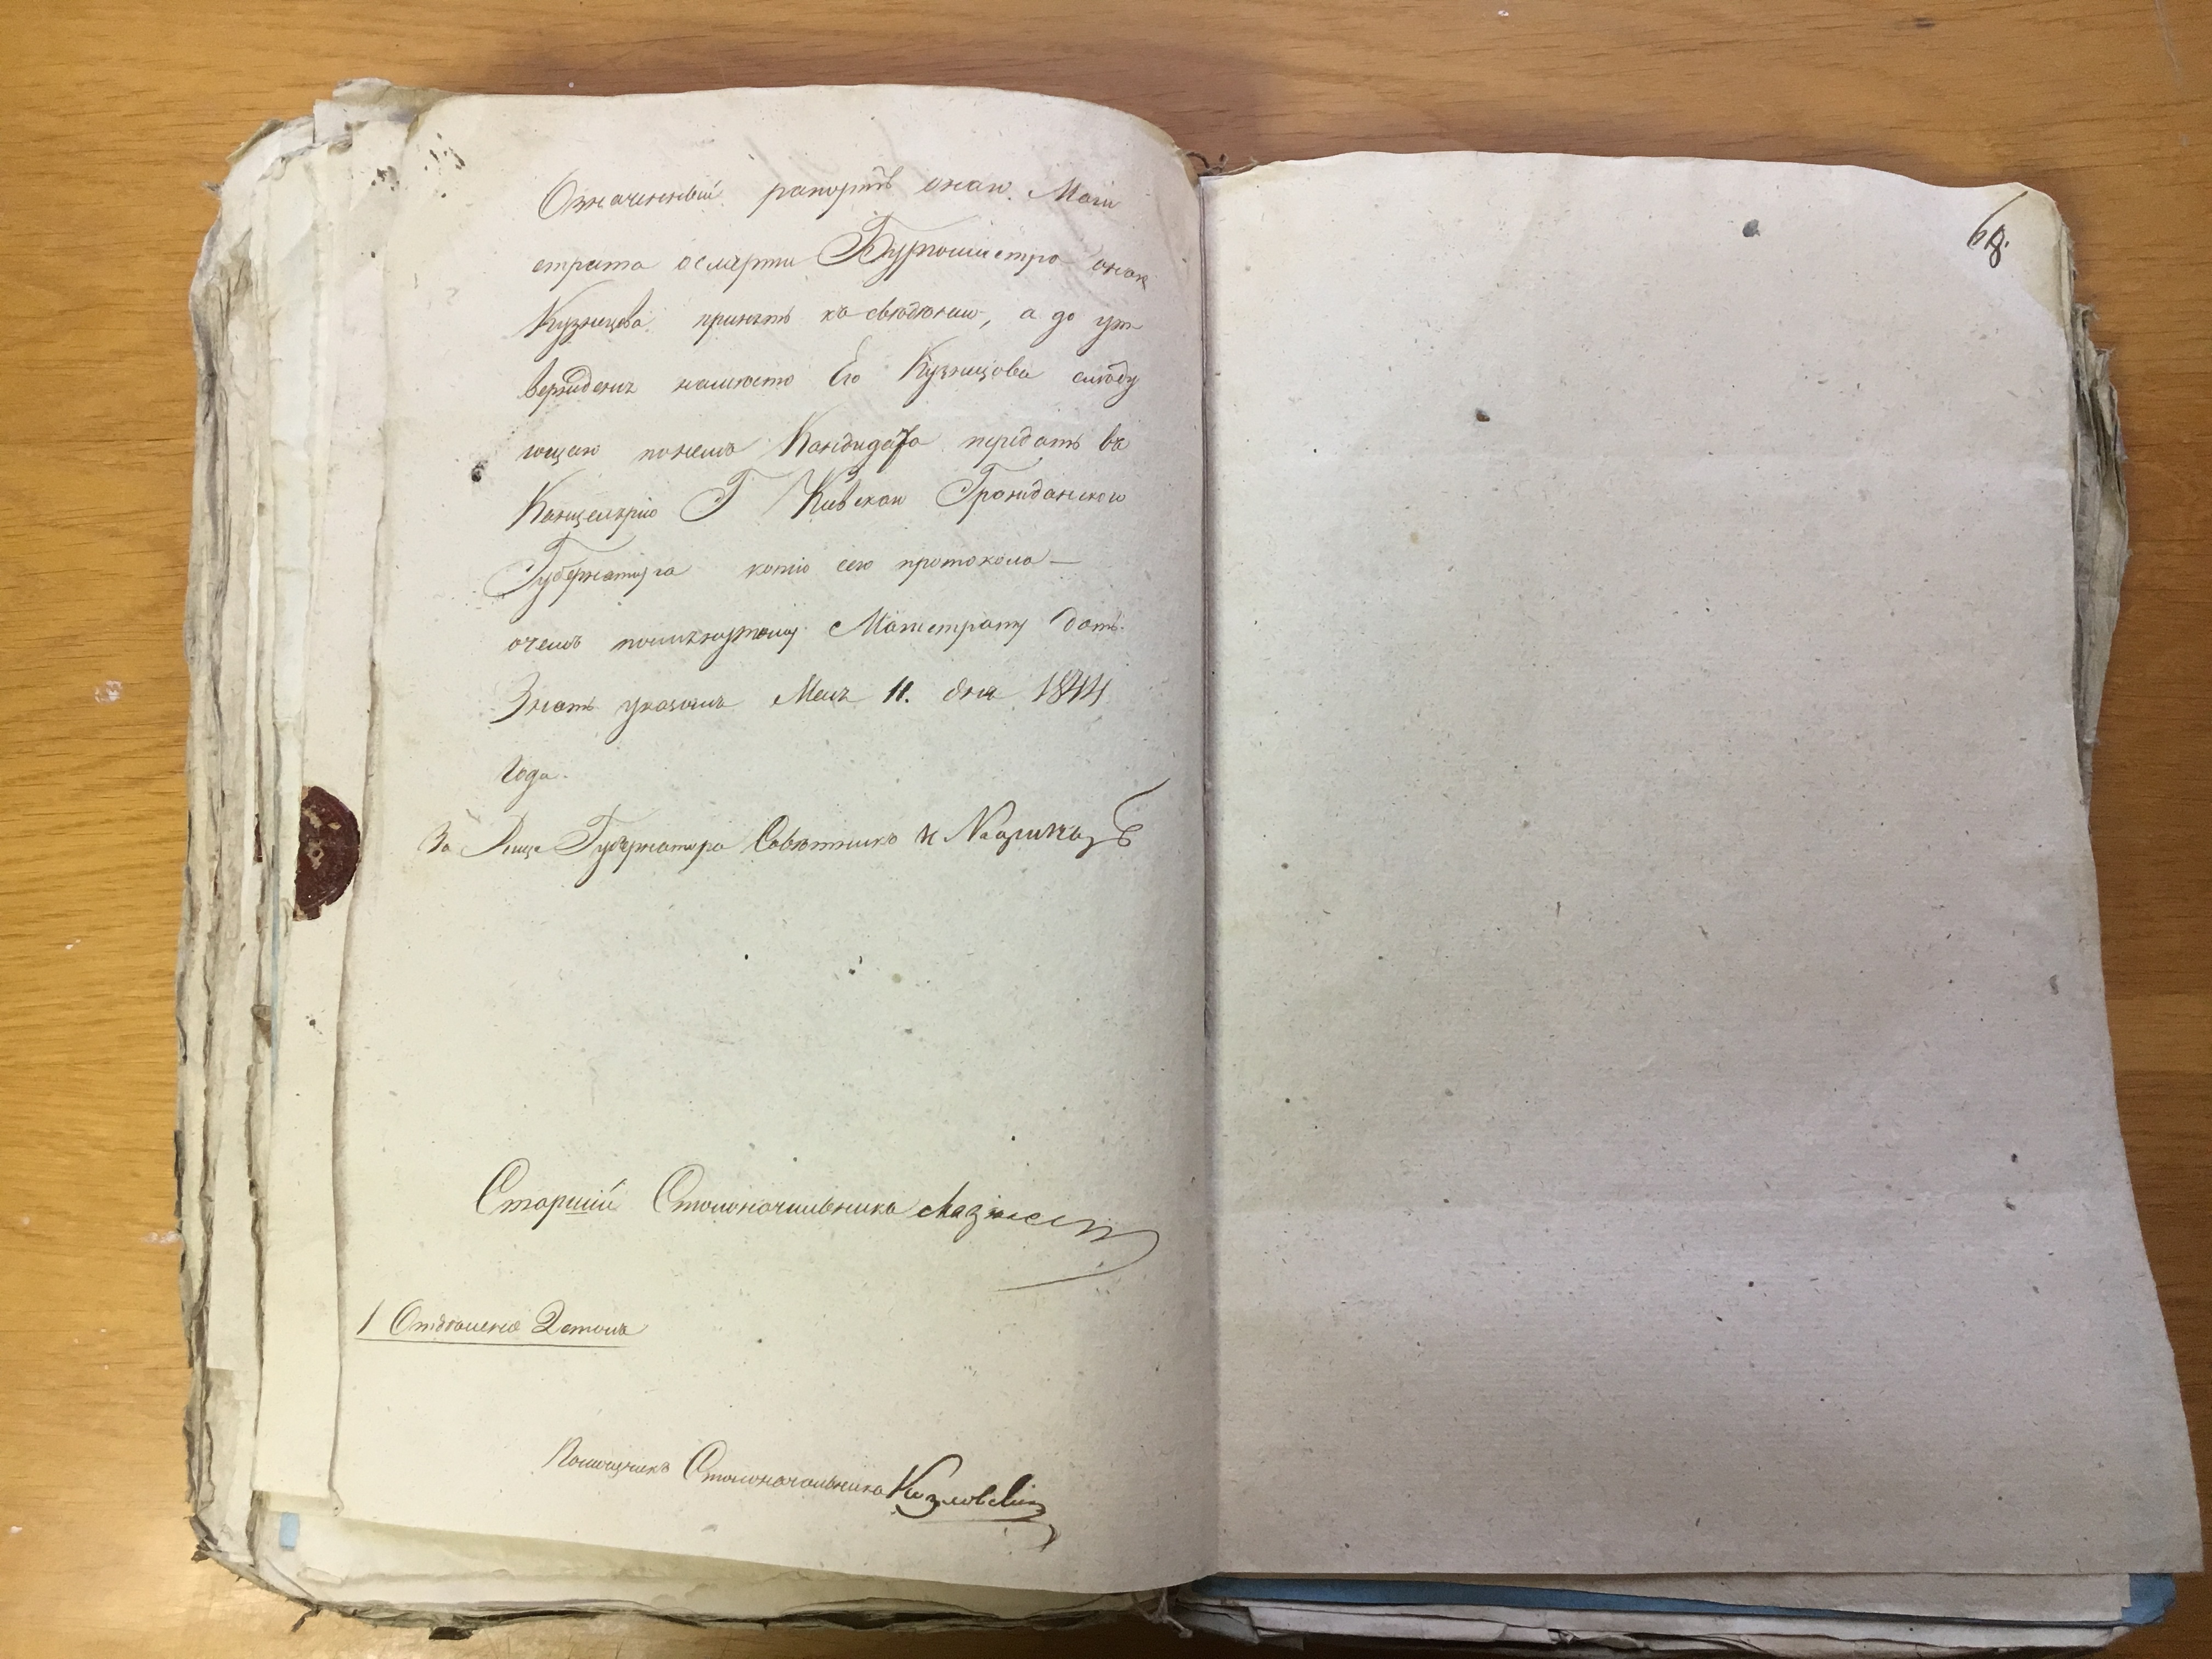 Означенный рапортъ онаго Маги
страта осмерти Бургомистра онаго
Кузнецова принять къ свѣдѣнію, а до ут
вержденія намѣсто Его Кузнецова слѣду
ющаго понемъ Кандидата передать въ
Канцелярію Г Кіевскаго Гражданскаго
Губернатора копію сего протокола —
очемъ помянутому Магистрату дать
Знать указомъ Маія 11. дня 1844
Года.
За Вице Губернатора Совѣтникъ
Старшій Столоначальника
1 Отдѣленія 2 стола
Помощникъ Столоначальника Козловскій
68.